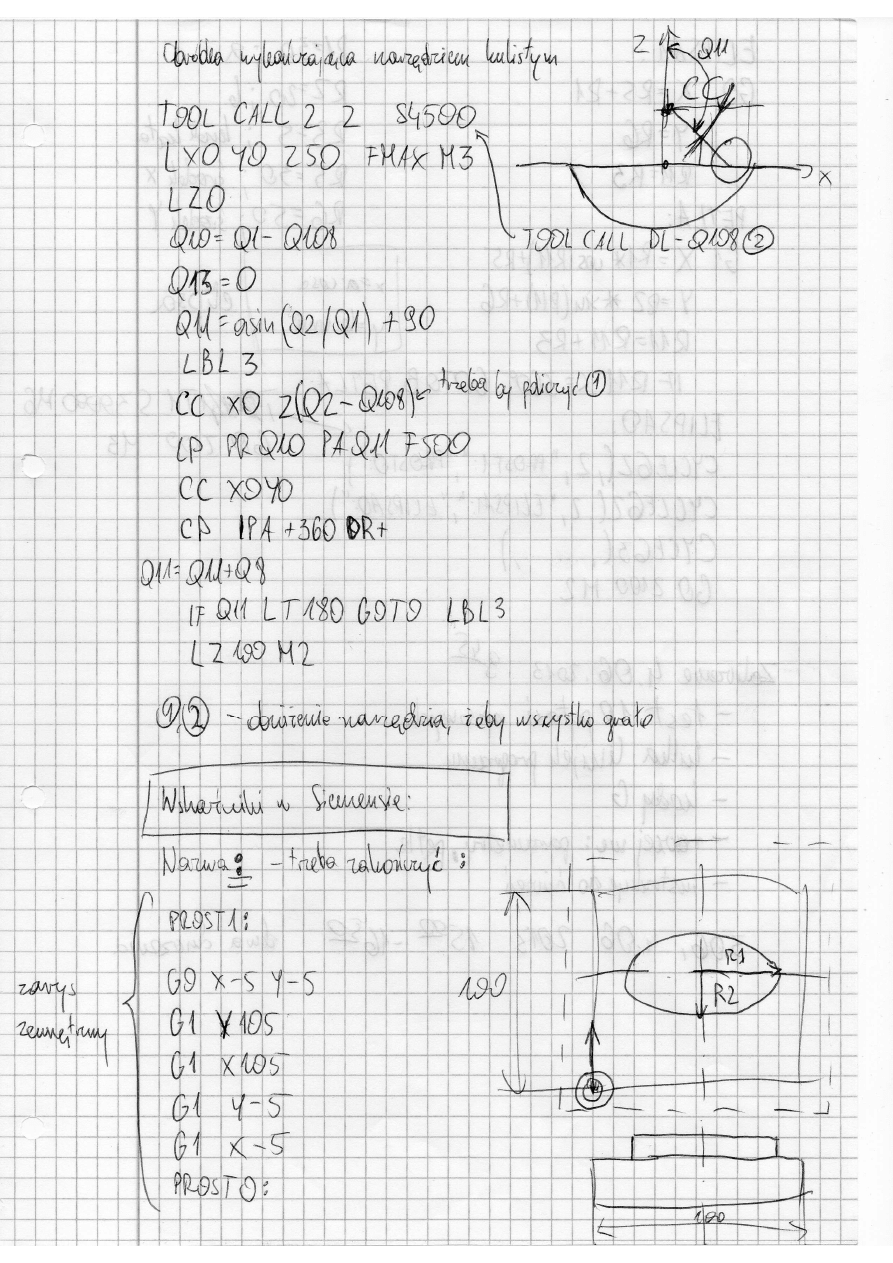 Obróbka wykańczająca narzędziem kulistym
TOOL CALL 2 Z S4500
L X0 Y0 Z50 FMAX M3
L Z0
Q10 = Q1 - Q108
Q13 = 0
Q11 = asin (Q2/Q1) + 90
LBL 3
CC X0 Z(Q2 - Q108) ← trzeba by policzyć ①
LP PR Q10 PA Q11 F500
CC X0 Y0
CP IPA +360 DR+
Q11 = Q11 + Q8
IF Q11 LT 180 GOTO LBL3
L Z 100 M2
Z
Q11
CC
X
TOOL CALL DL-Q108 ②
①,② - obniżenie narzędzia, żeby wszystko grało
Wskaźniki w Siemensie:
Nazwa: - trzeba zakończyć :
zarys
zewnętrzny
PROST1:
G0 X-5 Y-5
G1 Y105
G1 X105
G1 Y-5
G1 X-5
PROSTO:
100
R1
R2
100